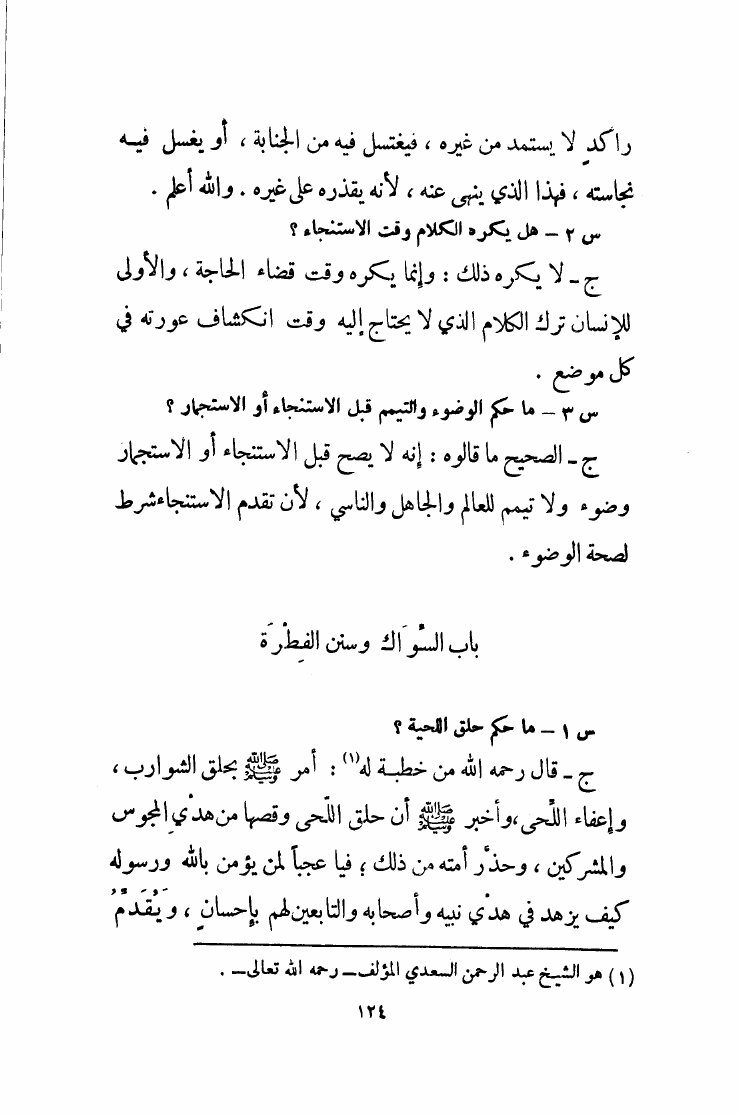 راكدٍ لا يستمد من غيره ، فيغتسل فيه من الجنابة ، أو يغسل فيـه
نجاسته ، فهذا الذي ينهى عنه ، لأنه يقذره على غيره . والله أعلم .
س ٢ – هل يكره الكلام وقت الاستنجاء ؟
ج – لا يكره ذلك : وإنما يكره وقت قضاء الحاجة ، والأولى
للإنسان ترك الكلام الذي لا يحتاج إليه وقت انكشاف عورته في
كل موضع .
س ٣ – ما حكم الوضوء والتيمم قبل الاستنجاء أو الاستجمار ؟
ج – الصحيح ما قالوه : إنه لا يصح قبل الاستنجاء أو الاستجمار
وضوء ولا تيمم للعالم والجاهل والناسي ، لأن تقدم الاستنجاء شرط
لصحة الوضوء .
باب السِّوَاك وسنن الفِطْرَة
س ١ – ما حكم حلق اللحية ؟
ج – قال رحمه الله من خطبـة له(١) : أمر ﷺ بحلق الشوارب ،
وإعفاء اللِّحى، وأخبر ﷺ أن حلق اللِّحى وقصها من هدْيِ المجوس
والمشركين ، وحذَّر أمته من ذلك ؛ فيا عجباً لمن يؤمن بالله ورسوله
كيف يزهد في هدْي نبيه وأصحابه والتابعين لهم بإحسانٍ ، وَيُقَدِّمُ
(١) هو الشيخ عبد الرحمن السعدي المؤلف – رحمه الله تعالى – .
١٢٤